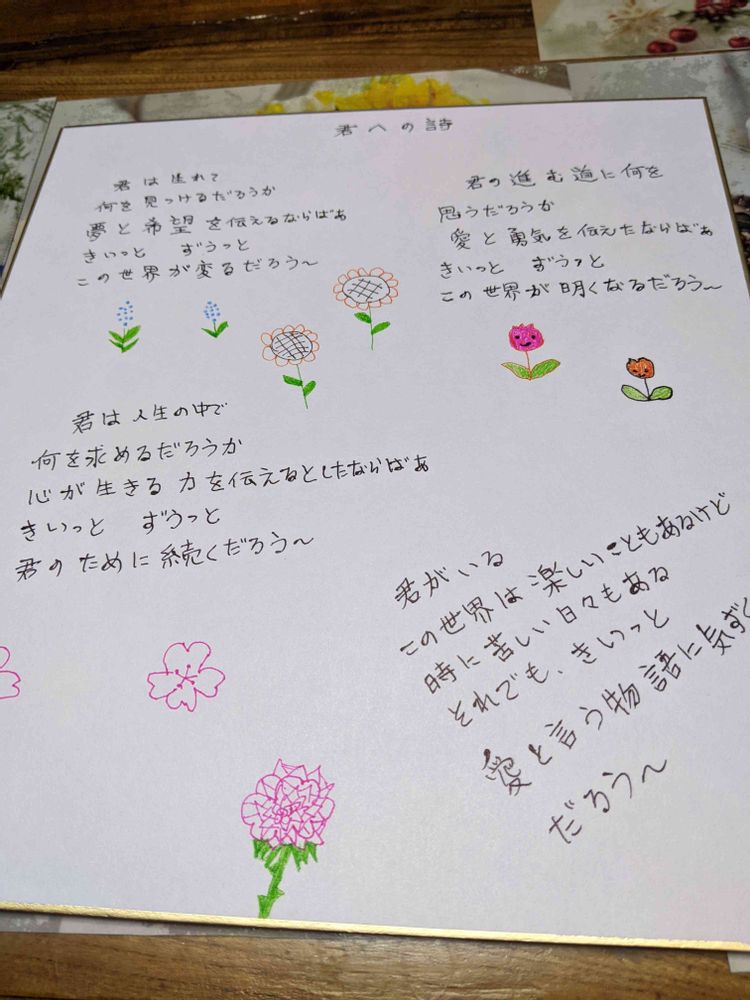 君への詩
君は生れて
何を見つけるだろうか
夢と希望を伝えるならばぁ
きいっと ずうっと
この世界が変るだろう～
君の進む道に何を
思うだろうか
愛と勇気を伝えたならばぁ
きいっと ずうっと
この世界が明くなるだろう～
君は人生の中で
何を求めるだろうか
心が生きる力を伝えるとしたならばぁ
きいっと ずうっと
君のために続くだろう～
君がいる
この世界は楽しいこともあるけど
時に苦しい日々もある
それでも、きいっと
愛と言う物語に気ずく
だろう～